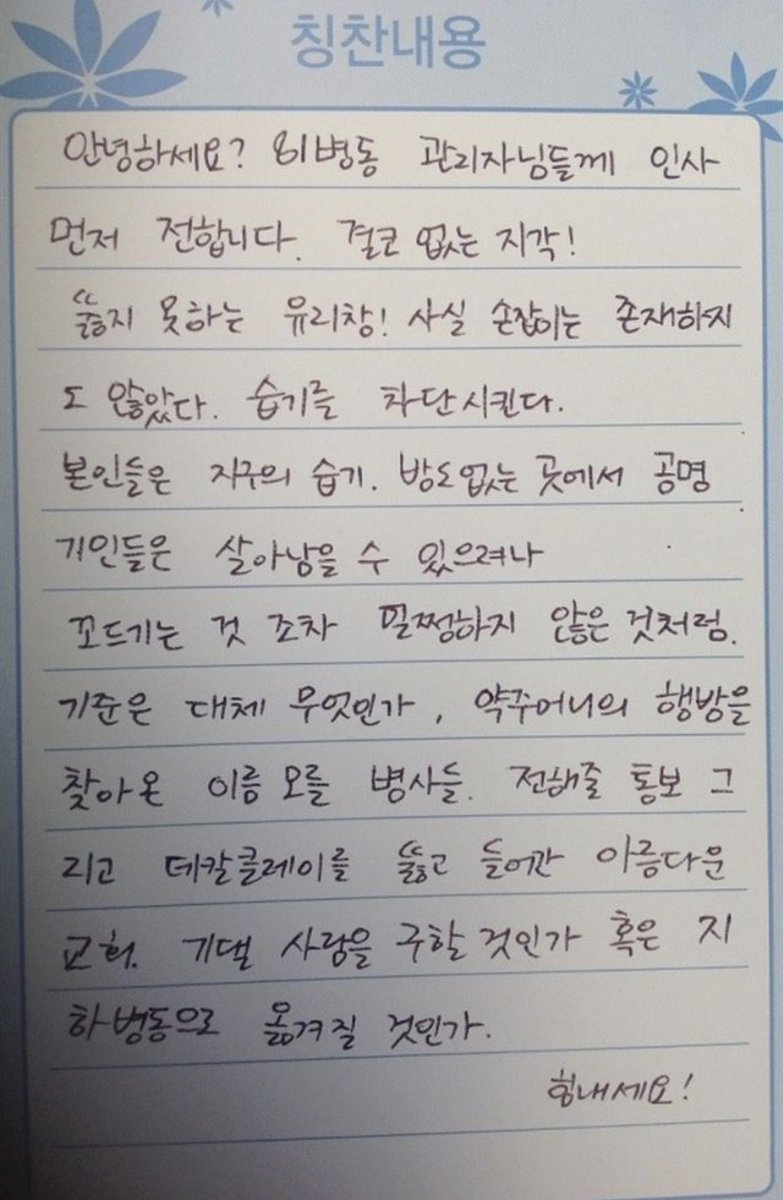 칭찬내용
안녕하세요? 81병동 관리자님들께 인사
먼저 전합니다. 결코 없는 지각!
뚫지 못하는 유리창! 사실 손잡이는 존재하지
도 않았다. 습기를 차단시킨다.
본인들은 지구의 습기. 방도없는 곳에서 공명
기인들은 살아남을 수 있으려나
꼬드기는 것 조차 멀쩡하지 않은 것처럼.
기준은 대체 무엇인가, 약주머니의 행방을
찾아온 이름 모를 병사들. 전해줄 통보 그
리고 데칼클레이를 뚫고 들어간 아름다운
교회. 기댈 사람을 구할 것인가 혹은 지
하 병동으로 옮겨질 것인가.
힘내세요!